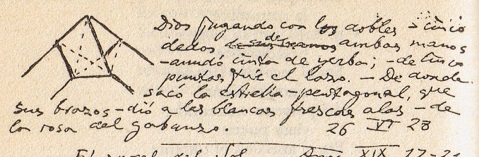 Dios jugando con los dobles – cinco
dedos de sus manos de ambas manos
– anudó cinta de yerba; – de cinco
puntas fué el lazo. – De donde
sacó la estrella – pentagonal, que
sus brazos – dió a las blancas frescas alas – de
la rosa del gabanzo.
26 VI 28
XIX